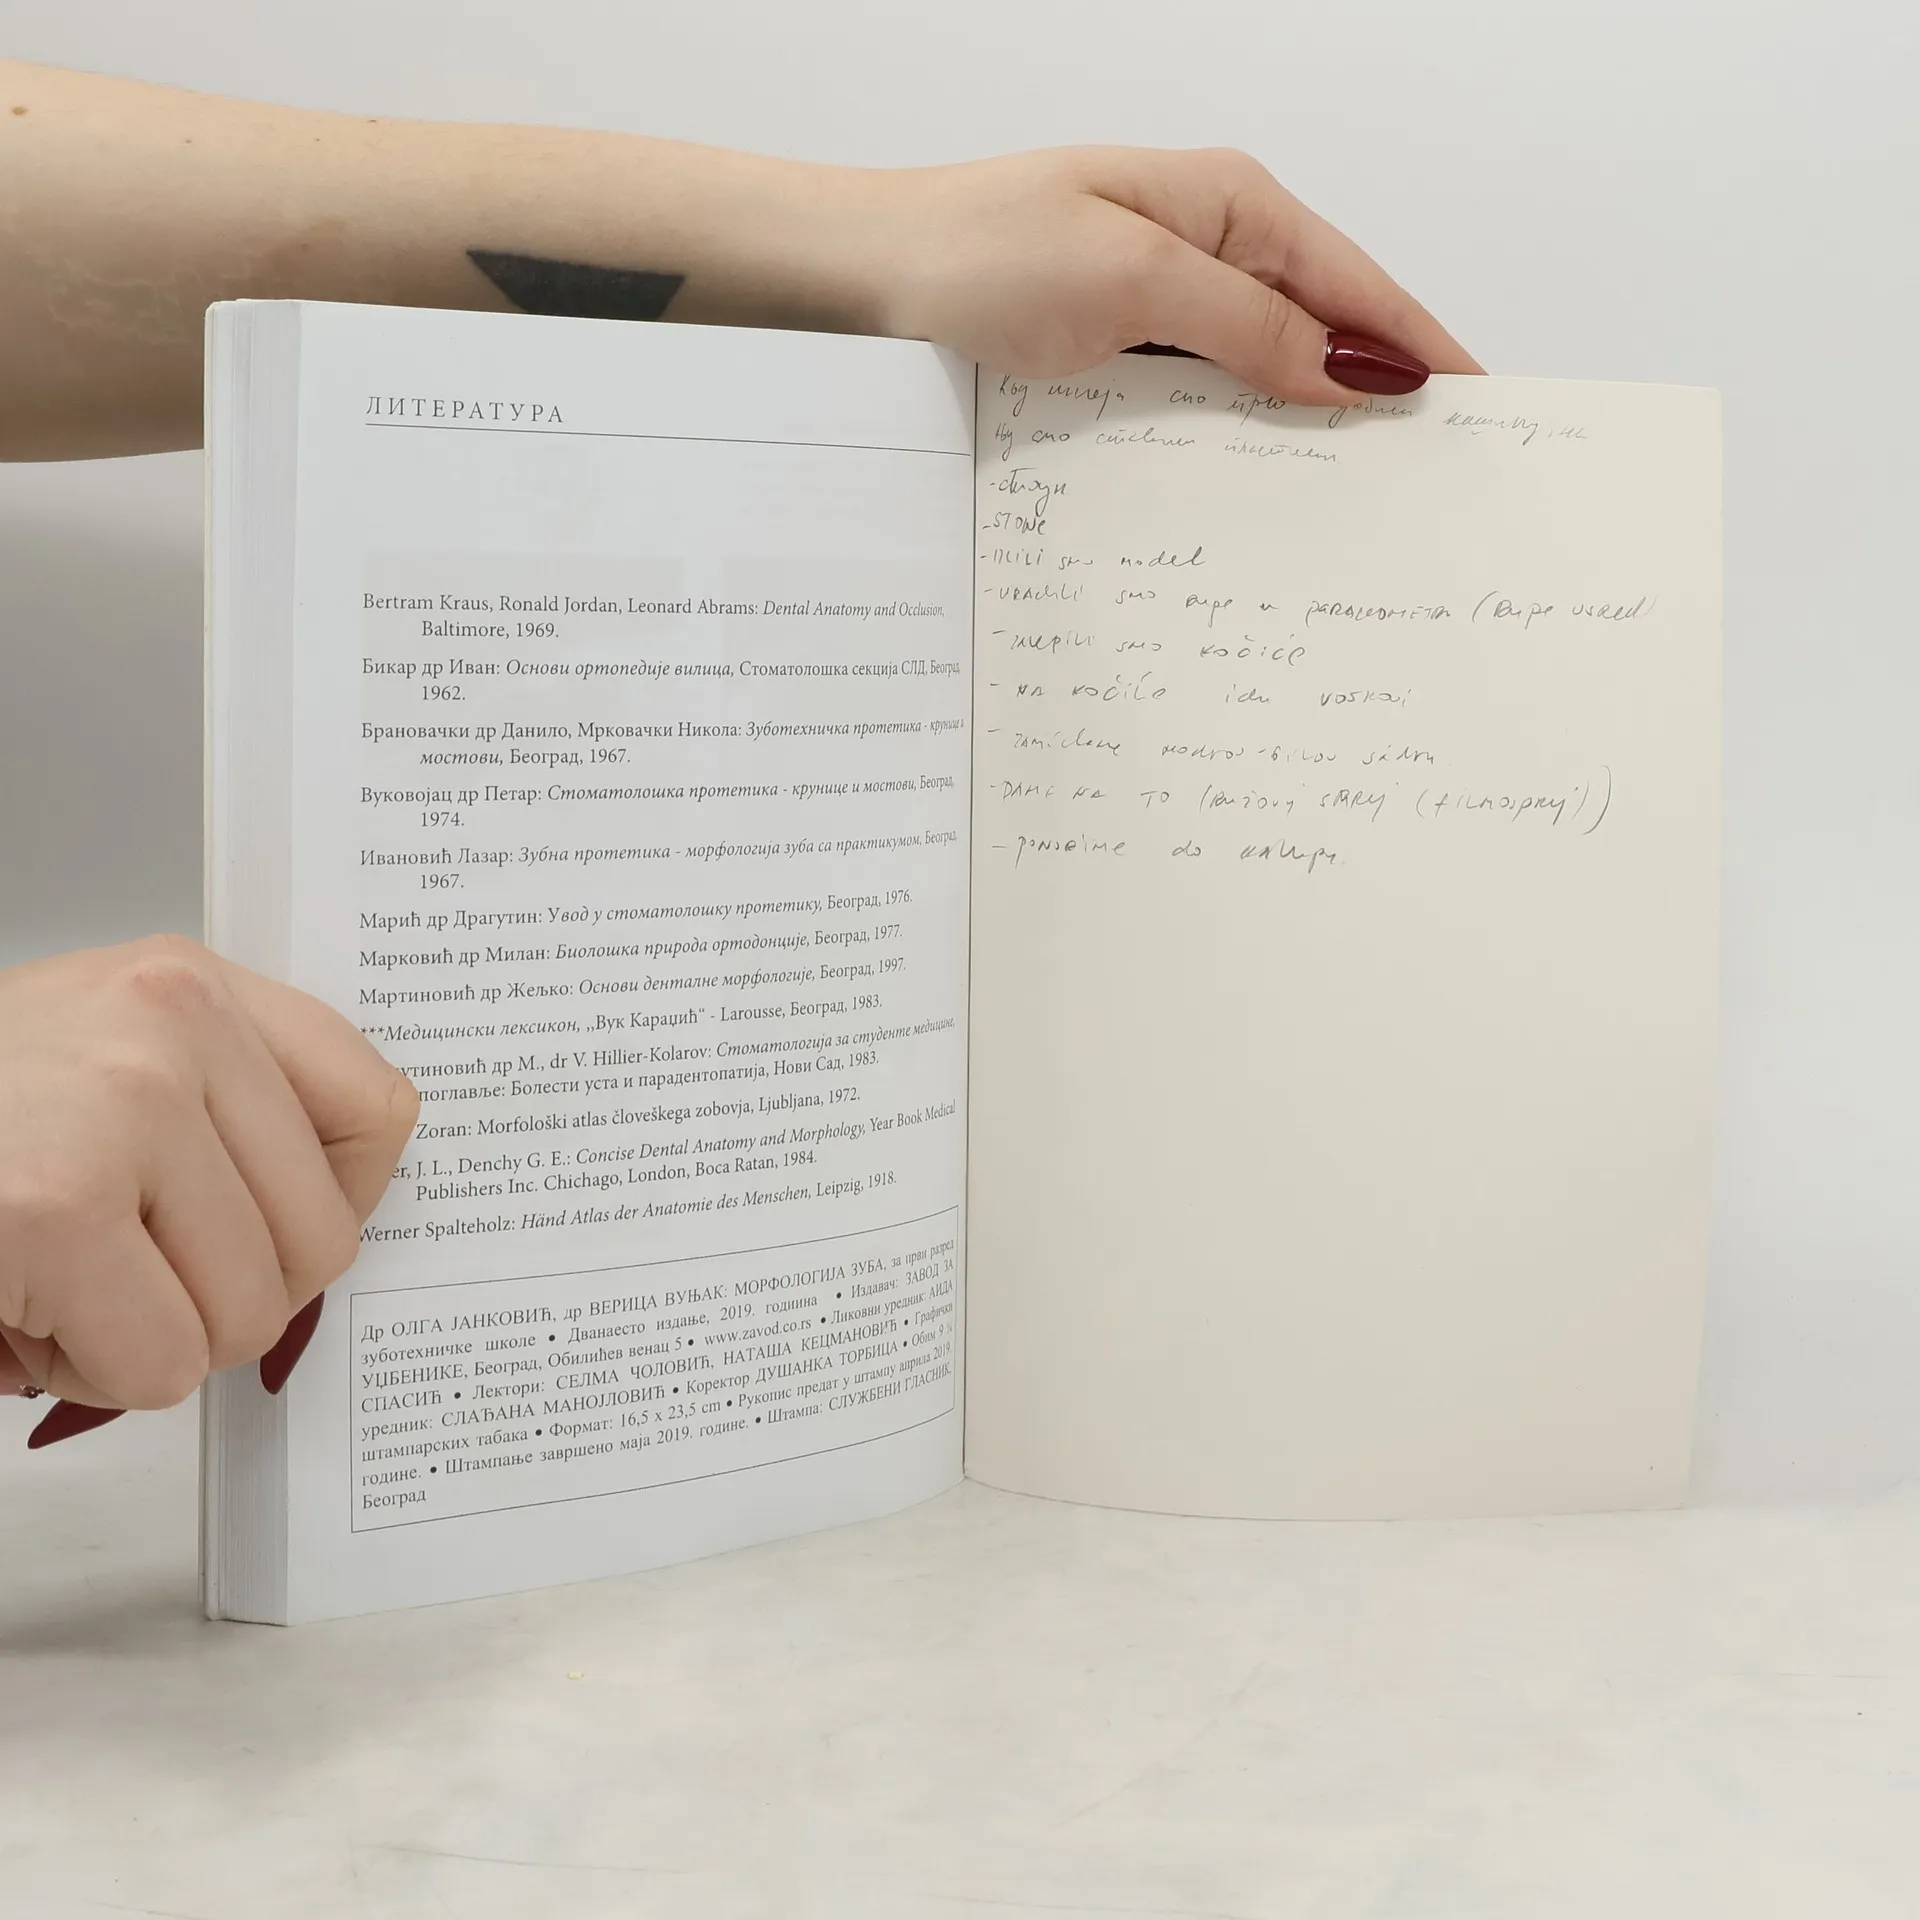 ЛИТЕРАТУРА
Bertram Kraus, Ronald Jordan, Leonard Abrams: Dental Anatomy and Occlusion,
Baltimore, 1969.
Бикар др Иван: Основи ортопедије вилица, Стоматолошка секција СЛД, Београд,
1962.
Брановачки др Данило, Мрковачки Никола: Зуботехничка протетика - крунице и
мостови, Београд, 1967.
Вуковојац др Петар: Стоматолошка протетика - крунице и мостови, Београд,
1974.
Ивановић Лазар: Зубна протетика - морфологија зуба са практикумом, Београд,
1967.
Марић др Драгутин: Увод у стоматолошку протетику, Београд, 1976.
Марковић др Милан: Биолошка природа ортодонције, Београд, 1977.
Мартиновић др Жељко: Основи денталне морфологије, Београд, 1997.
***Медицински лексикон, „Вук Караџић“ - Larousse, Београд, 1983.
утиновић др М., dr V. Hillier-Kolarov: Стоматологија за студенте медицине,
поглавље: Болести уста и парадентопатија, Нови Сад, 1983.
Zoran: Morfološki atlas človeškega zobovja, Ljubljana, 1972.
er, J. L., Denchy G. E.: Concise Dental Anatomy and Morphology, Year Book Medical
Publishers Inc. Chichago, London, Boca Ratan, 1984.
Werner Spalteholz: Händ Atlas der Anatomie des Menschen, Leipzig, 1918.
Др ОЛГА ЈАНКОВИЋ, др ВЕРИЦА ВУЊАК: МОРФОЛОГИЈА ЗУБА, за први разред
зуботехничке школе • Дванаесто издање, 2019. годиина • Издавач: ЗАВОД ЗА
УЏБЕНИКЕ, Београд, Обилићев венац 5 • www.zavod.co.rs • Ликовни уредник: АИДА
СПАСИЋ • Лектори: СЕЛМА ЧОЛОВИЋ, НАТАША КЕЦМАНОВИЋ • Графички
уредник: СЛАЂАНА МАНОЈЛОВИЋ • Коректор ДУШАНКА ТОРБИЦА • Обим 9 ¼
штампарских табака • Формат: 16,5 x 23,5 cm • Рукопис предат у штампу априла 2019.
године. • Штампање завршено маја 2019. године. • Штампа: СЛУЖБЕНИ ГЛАСНИК,
Београд
смо
смо
-STONE
smo model
-URADILI smo (rupe USRED)
smo KOČIĆE
- NA KOČIĆE idu VOSKOVI
-DAME NA TO
do